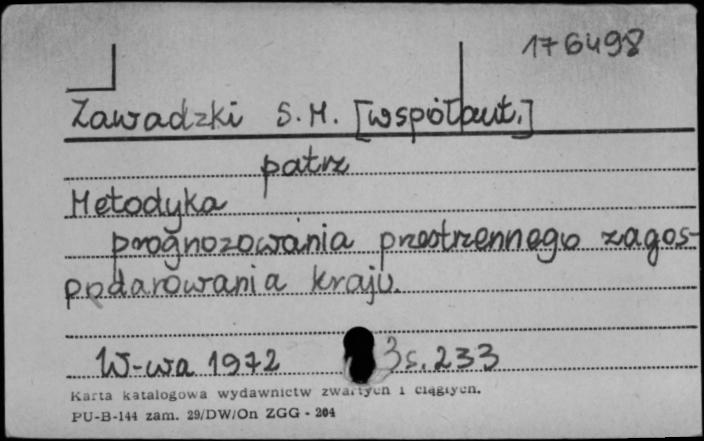 176498
Zawadzki S.M. [współaut.]
patrz
Metodyka
prognozowania przestrzennego zagos-
podarowania kraju.
W-wa 1972 s. 233
Karta katalogowa wydawnictw zwartych i ciągłych.
PU-B-144 zam. 29/DW/On ZGG - 204